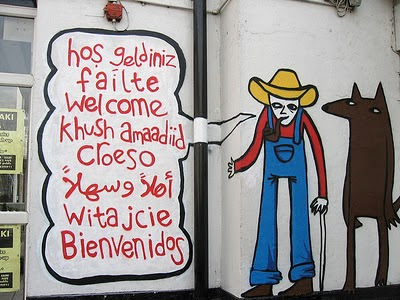 hoş geldiniz
failte
welcome
khush amaadiid
croeso
أهلاً وسهلاً
witajcie
Bienvenidos
AKI